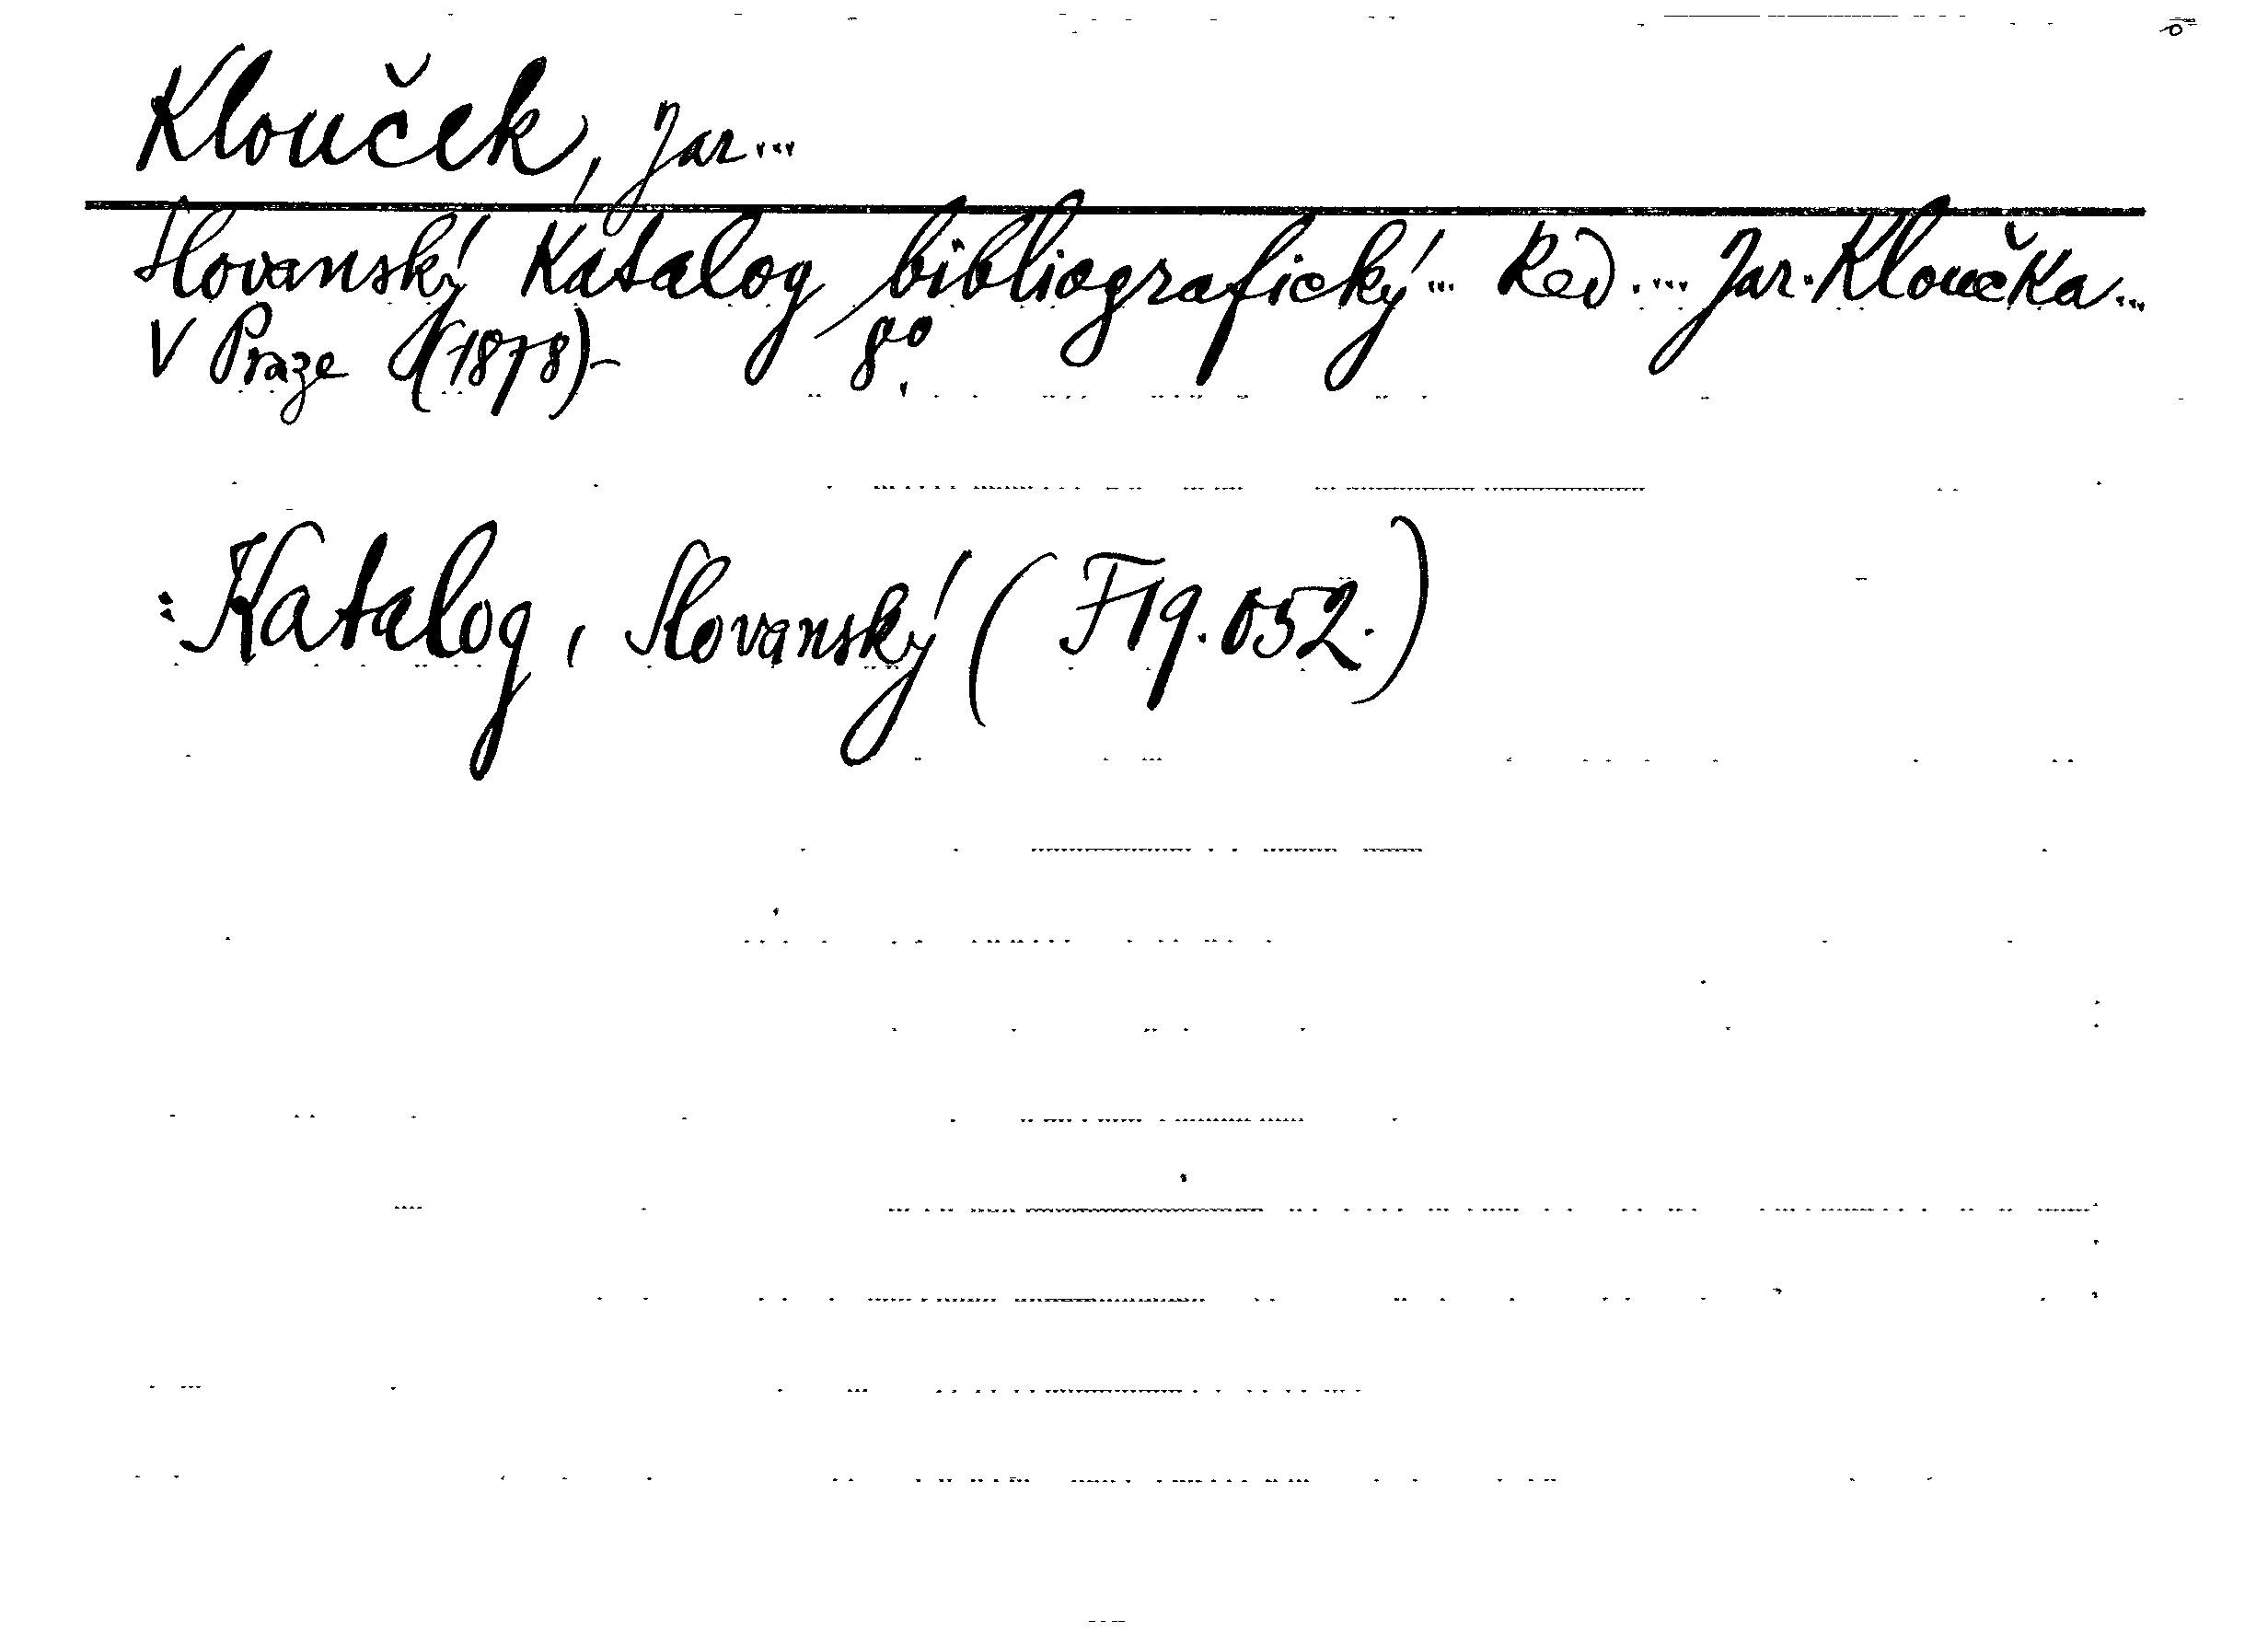 Klouček, Jar...
Slovanský Katalog bibliografický... Red.... Jar. Kloučka...
V Praze (1878)- 8º.
: Katalog, Slovanský (F19.052.)